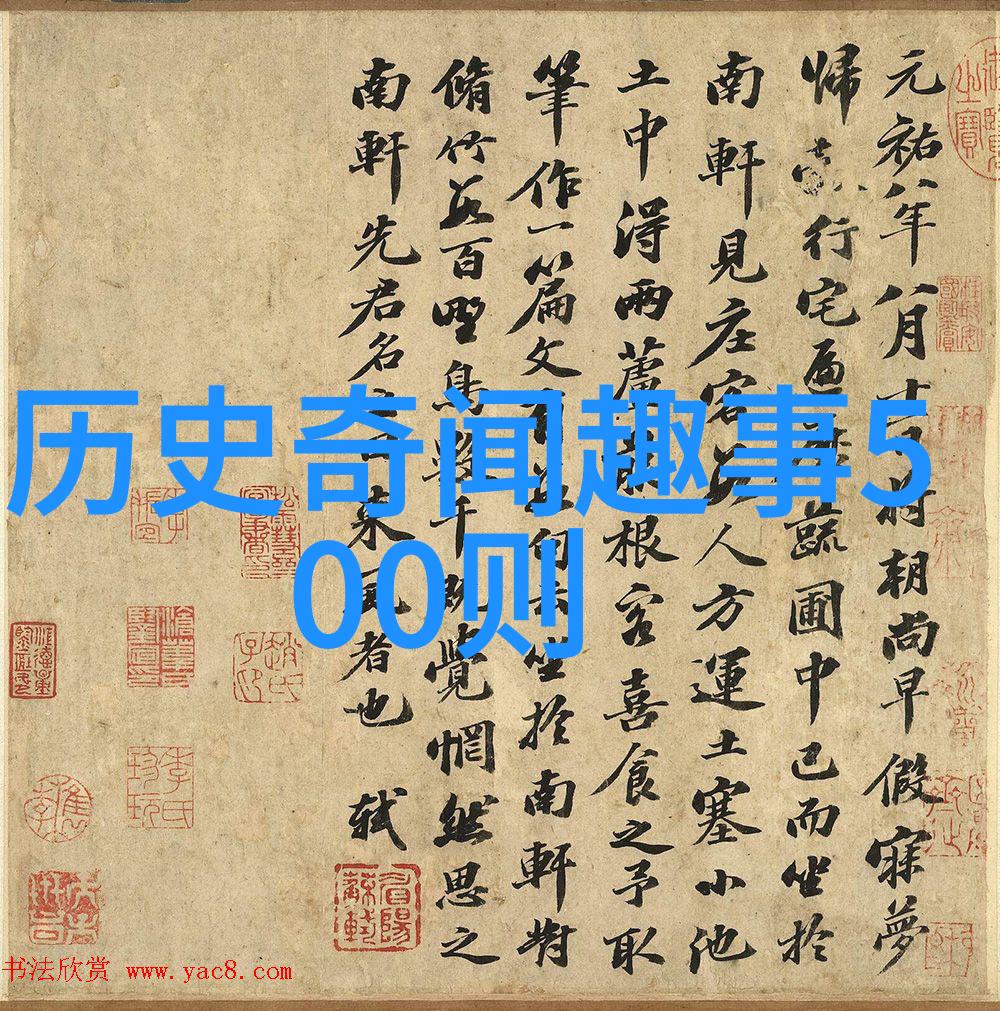 元祐八年八月十一日將朝尚早假寐夢
歸行宅遍蔬圃中已而坐於
南軒見庄客數人方運土塞小池
土中得兩蘆根客喜食之予取
筆作一篇文有數句云坐於南軒對
脩竹數百野鳥數千既覺惘然思之
南軒先君名之曰來風者也 軾
历史奇闻趣事5
00则
书法欣赏 www.yac8.com